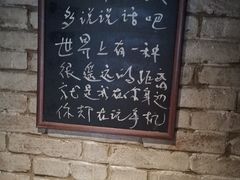 多说说话吧
世界上有一种
很遥远的距离
就是我在你身边
你却在玩手机